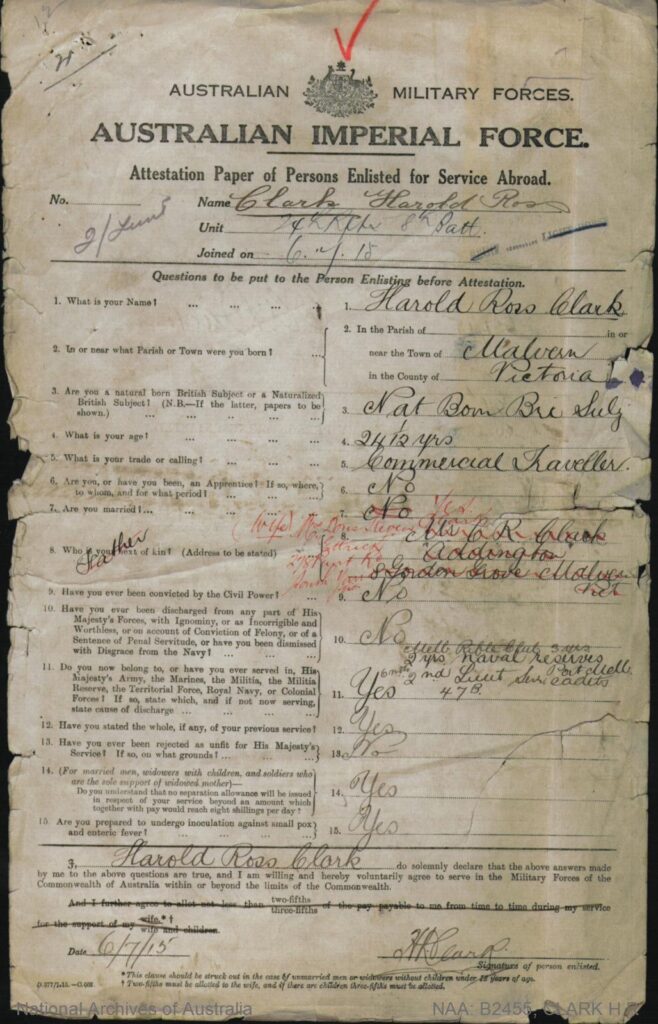 AUSTRALIAN MILITARY FORCES.
AUSTRALIAN IMPERIAL FORCE.
Attestation Paper of Persons Enlisted for Service Abroad.
No. Name Clark Harold Ross
2/Lieut Unit 24th 8th Batt.
Joined on 6.7.15
Questions to be put to the Person Enlisting before Attestation.
1. What is your Name? ... ... ... ... 1. Harold Ross Clark
2. In or near what Parish or Town were you born? ... 2. In the Parish of in or
near the Town of Malvern
in the County of Victoria
3. Are you a natural born British Subject or a Naturalized
British Subject? (N.B.—If the latter, papers to be
shown.) ... ... ... ... 3. Nat Born Bri Subj
4. What is your age? ... ... ... ... 4. 24 1/2 yrs
5. What is your trade or calling? ... ... ... 5. Commercial Traveller.
6. Are you, or have you been, an Apprentice? If so, where,
to whom, and for what period? ... ... ... 6. No
7. Are you married? ... ... ... ... 7. No Yes
(Wife) Mrs Doris
8. Who is your next of kin? (Address to be stated) Father 8. Mr C. R. Clark
Addington
8 Gordon Grove Malvern
Vic
9. Have you ever been convicted by the Civil Power? ... 9. No
10. Have you ever been discharged from any part of His
Majesty's Forces, with Ignominy, or as Incorrigible and
Worthless, or on account of Conviction of Felony, or of a
Sentence of Penal Servitude, or have you been dismissed
with Disgrace from the Navy? ... ... 10. No
11. Do you now belong to, or have you ever served in, His
Majesty's Army, the Marines, the Militia, the Militia
Reserve, the Territorial Force, Royal Navy, or Colonial
Forces? If so, state which, and if not now serving,
state cause of discharge ... ... ... 11. Yes
3 yrs
3 yrs Naval reserves
Port Melb
6 mnths 2nd Lieut Senr Cadets
47B.
12. Have you stated the whole, if any, of your previous service? 12. Yes
13. Have you ever been rejected as unfit for His Majesty's
Service? If so, on what grounds? ... ... 13. No
14. (For married men, widowers with children, and soldiers who
are the sole support of widowed mother—
Do you understand that no separation allowance will be issued
in respect of your service beyond an amount which
together with pay would reach eight shillings per day? 14. Yes
15. Are you prepared to undergo inoculation against small pox
and enteric fever? ... ... ... 15. Yes
I, Harold Ross Clark do solemnly declare that the above answers made
by me to the above questions are true, and I am willing and hereby voluntarily agree to serve in the Military Forces of the
Commonwealth of Australia within or beyond the limits of the Commonwealth.
And I further agree to allot not less than two-fifths three-fifths of the pay payable to me from time to time during my service
for the support of my wife.*† wife and children.
Date 6/7/15 H R Clark
Signature of person enlisted.
* This clause should be struck out in the case of unmarried men or widowers without children under 18 years of age.
† Two-fifths must be allotted to the wife, and if there are children three-fifths must be allotted.
National Archives of Australia NAA: B2455, CLARK H R